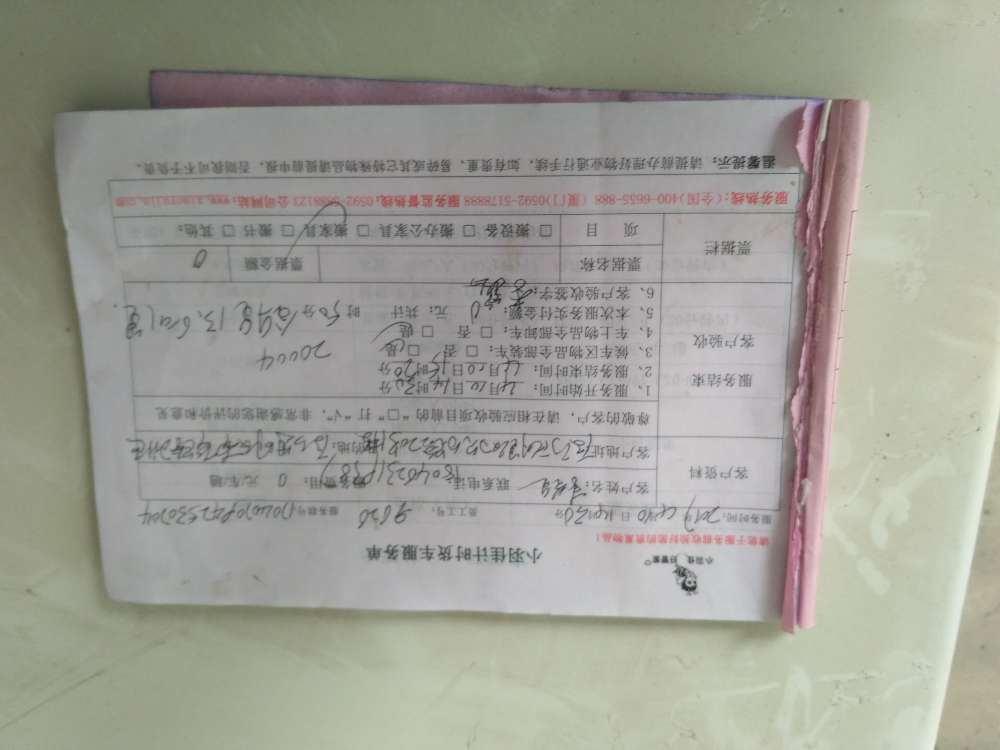 小羽佳 好管家
小羽佳计时货车服务单
请您于服务前收捡好您的贵重物品!
服务时间: 2017年4月10日14时30分 员工号: 9620 服务顺号:
客户资料
客户姓名: 联系电话: 服务费用: 0 元/车趟
客户地址: 目的地:
尊敬的客户，请在相应验收项目前的“□”打“√”，非常感谢您的评价和意见
服务结束
客户验收
1、服务开始时间: 4月10日14时30分
2、服务结束时间: 4月10日15时20分
3、候车区物品全部装车: □ 否 □ 是
20004
4、车上物品全部卸车: □ 否 □ 是
5、本次服务实付金额: 0 元: 共计: 时50分 公里13.6公里
6、客户验收签字:
票据栏
票据名称 票据金额 0
项 目 □ 搬设备 □ 搬办公家具 □ 搬家具 □ 搬书 □ 其他:
服务热线: (全国)400-6655-888 (厦门)0592-5178898 服务监督热线: 0592-5988123 公司网站: www.xiaoyujia.com
温馨提示: 请提前办理好物业通行手续，如有贵重、易碎或其它特殊物品请提前申报，否则我司不予负责。